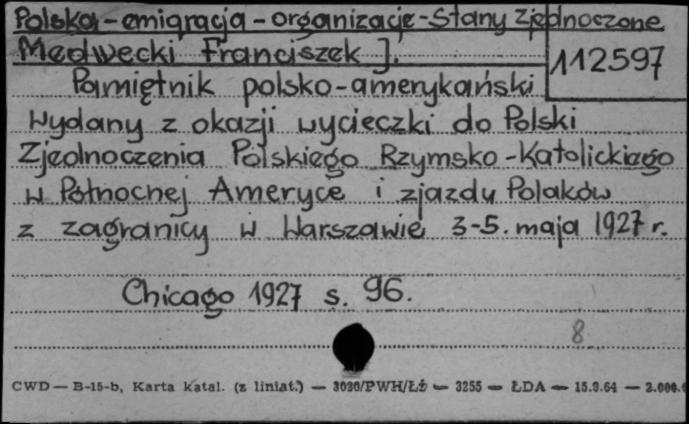 Polska-emigracja-organizacje-Stany Zjednoczone
Medwecki Franciszek J.
112597
Pamiętnik polsko-amerykański
wydany z okazji wycieczki do Polski
Zjednoczenia Polskiego Rzymsko-Katolickiego
w Północnej Ameryce i zjazdu Polaków
z zagranicy w Warszawie 3-5. maja 1927 r.
Chicago 1927 s. 96.
8
CWD — B-15-b, Karta katal. (z liniat.) — 3030/PWH/ŁŹ — 3255 — ŁDA — 15.9.64 — 2.000.